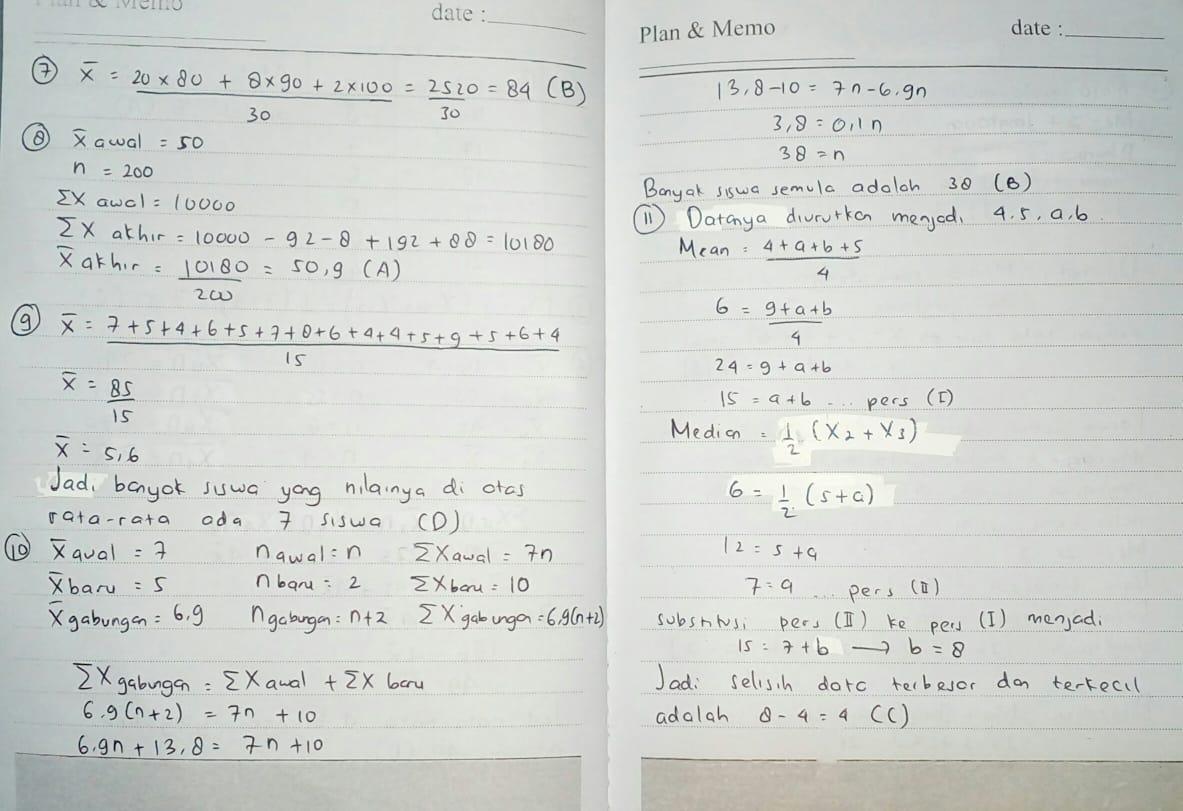 Plan & Memo
date :
⑦ x̄ = 20 x 80 + 8 x 90 + 2 x 100 = 2520 = 84 (B)
30 30
⑧ x̄ awal = 50
n = 200
Σx awal = 10000
Σx akhir = 10000 - 92 - 8 + 192 + 88 = 10180
x̄ akhir = 10180 = 50,9 (A)
200
⑨ x̄ = 7+5+4+6+5+7+8+6+4+4+5+9+5+6+4
15
x̄ = 85
15
x̄ = 5,6
Jadi banyak siswa yang nilainya di atas
rata-rata ada 7 siswa (D)
⑩ x̄ awal = 7 n awal = n Σx awal = 7n
x̄ baru = 5 n baru = 2 Σx baru = 10
x̄ gabungan = 6,9 n gabungan = n+2 Σx gabungan = 6,9(n+2)
Σx gabungan = Σx awal + Σx baru
6,9(n+2) = 7n + 10
6,9n + 13,8 = 7n + 10
Plan & Memo
date :
13,8 - 10 = 7n - 6,9n
3,8 = 0,1n
38 = n
Banyak siswa semula adalah 38 (B)
⑪ Datanya diurutkan menjadi 4, 5, a, b
Mean = 4 + a + b + 5
4
6 = 9 + a + b
4
24 = 9 + a + b
15 = a + b ... pers (I)
Median = 1/2 (x2 + x3)
6 = 1/2 (5 + a)
12 = 5 + a
7 = a ... pers (II)
substitusi pers (II) ke pers (I) menjadi
15 = 7 + b → b = 8
Jadi selisih data terbesar dan terkecil
adalah 8 - 4 = 4 (C)